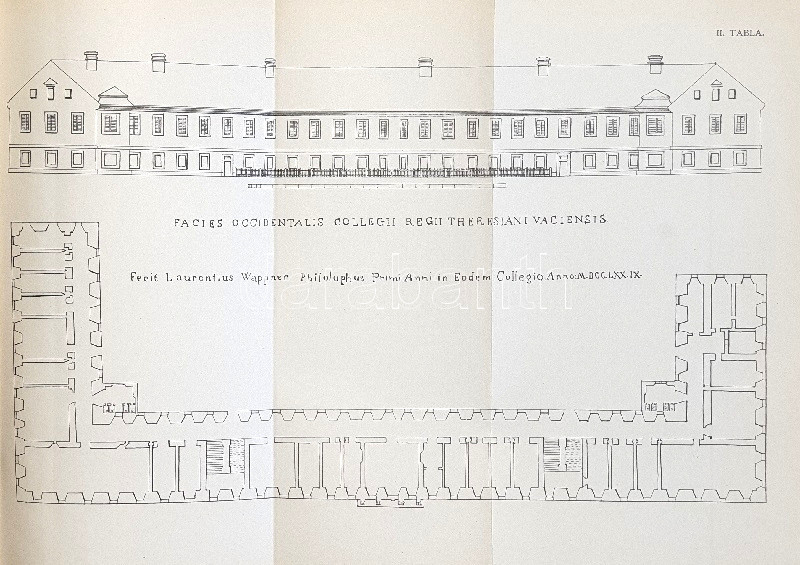 II. TABLA.
FACIES OCCIDENTALIS COLLEGII REGII THERESIANI VACIENSIS
Fecit Laurentius Wappner Philosophus Primi Anni in Eodem Collegio Anno M·DCCLXX·IX·
darabanth